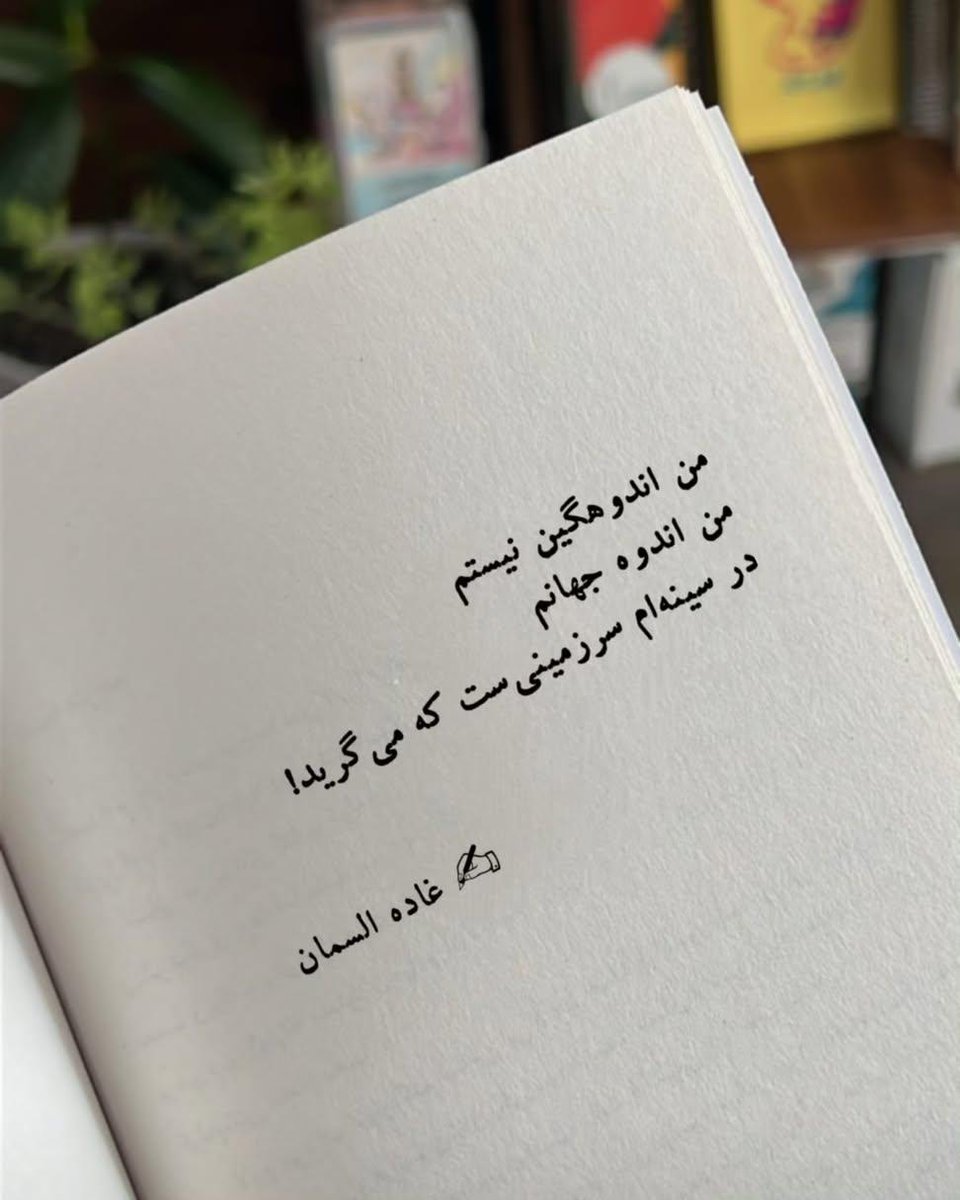 من اندوهگین نیستم
من اندوه جهانم
در سینه‌ام سرزمینی‌ست که می‌گرید!
✍ غاده السمان